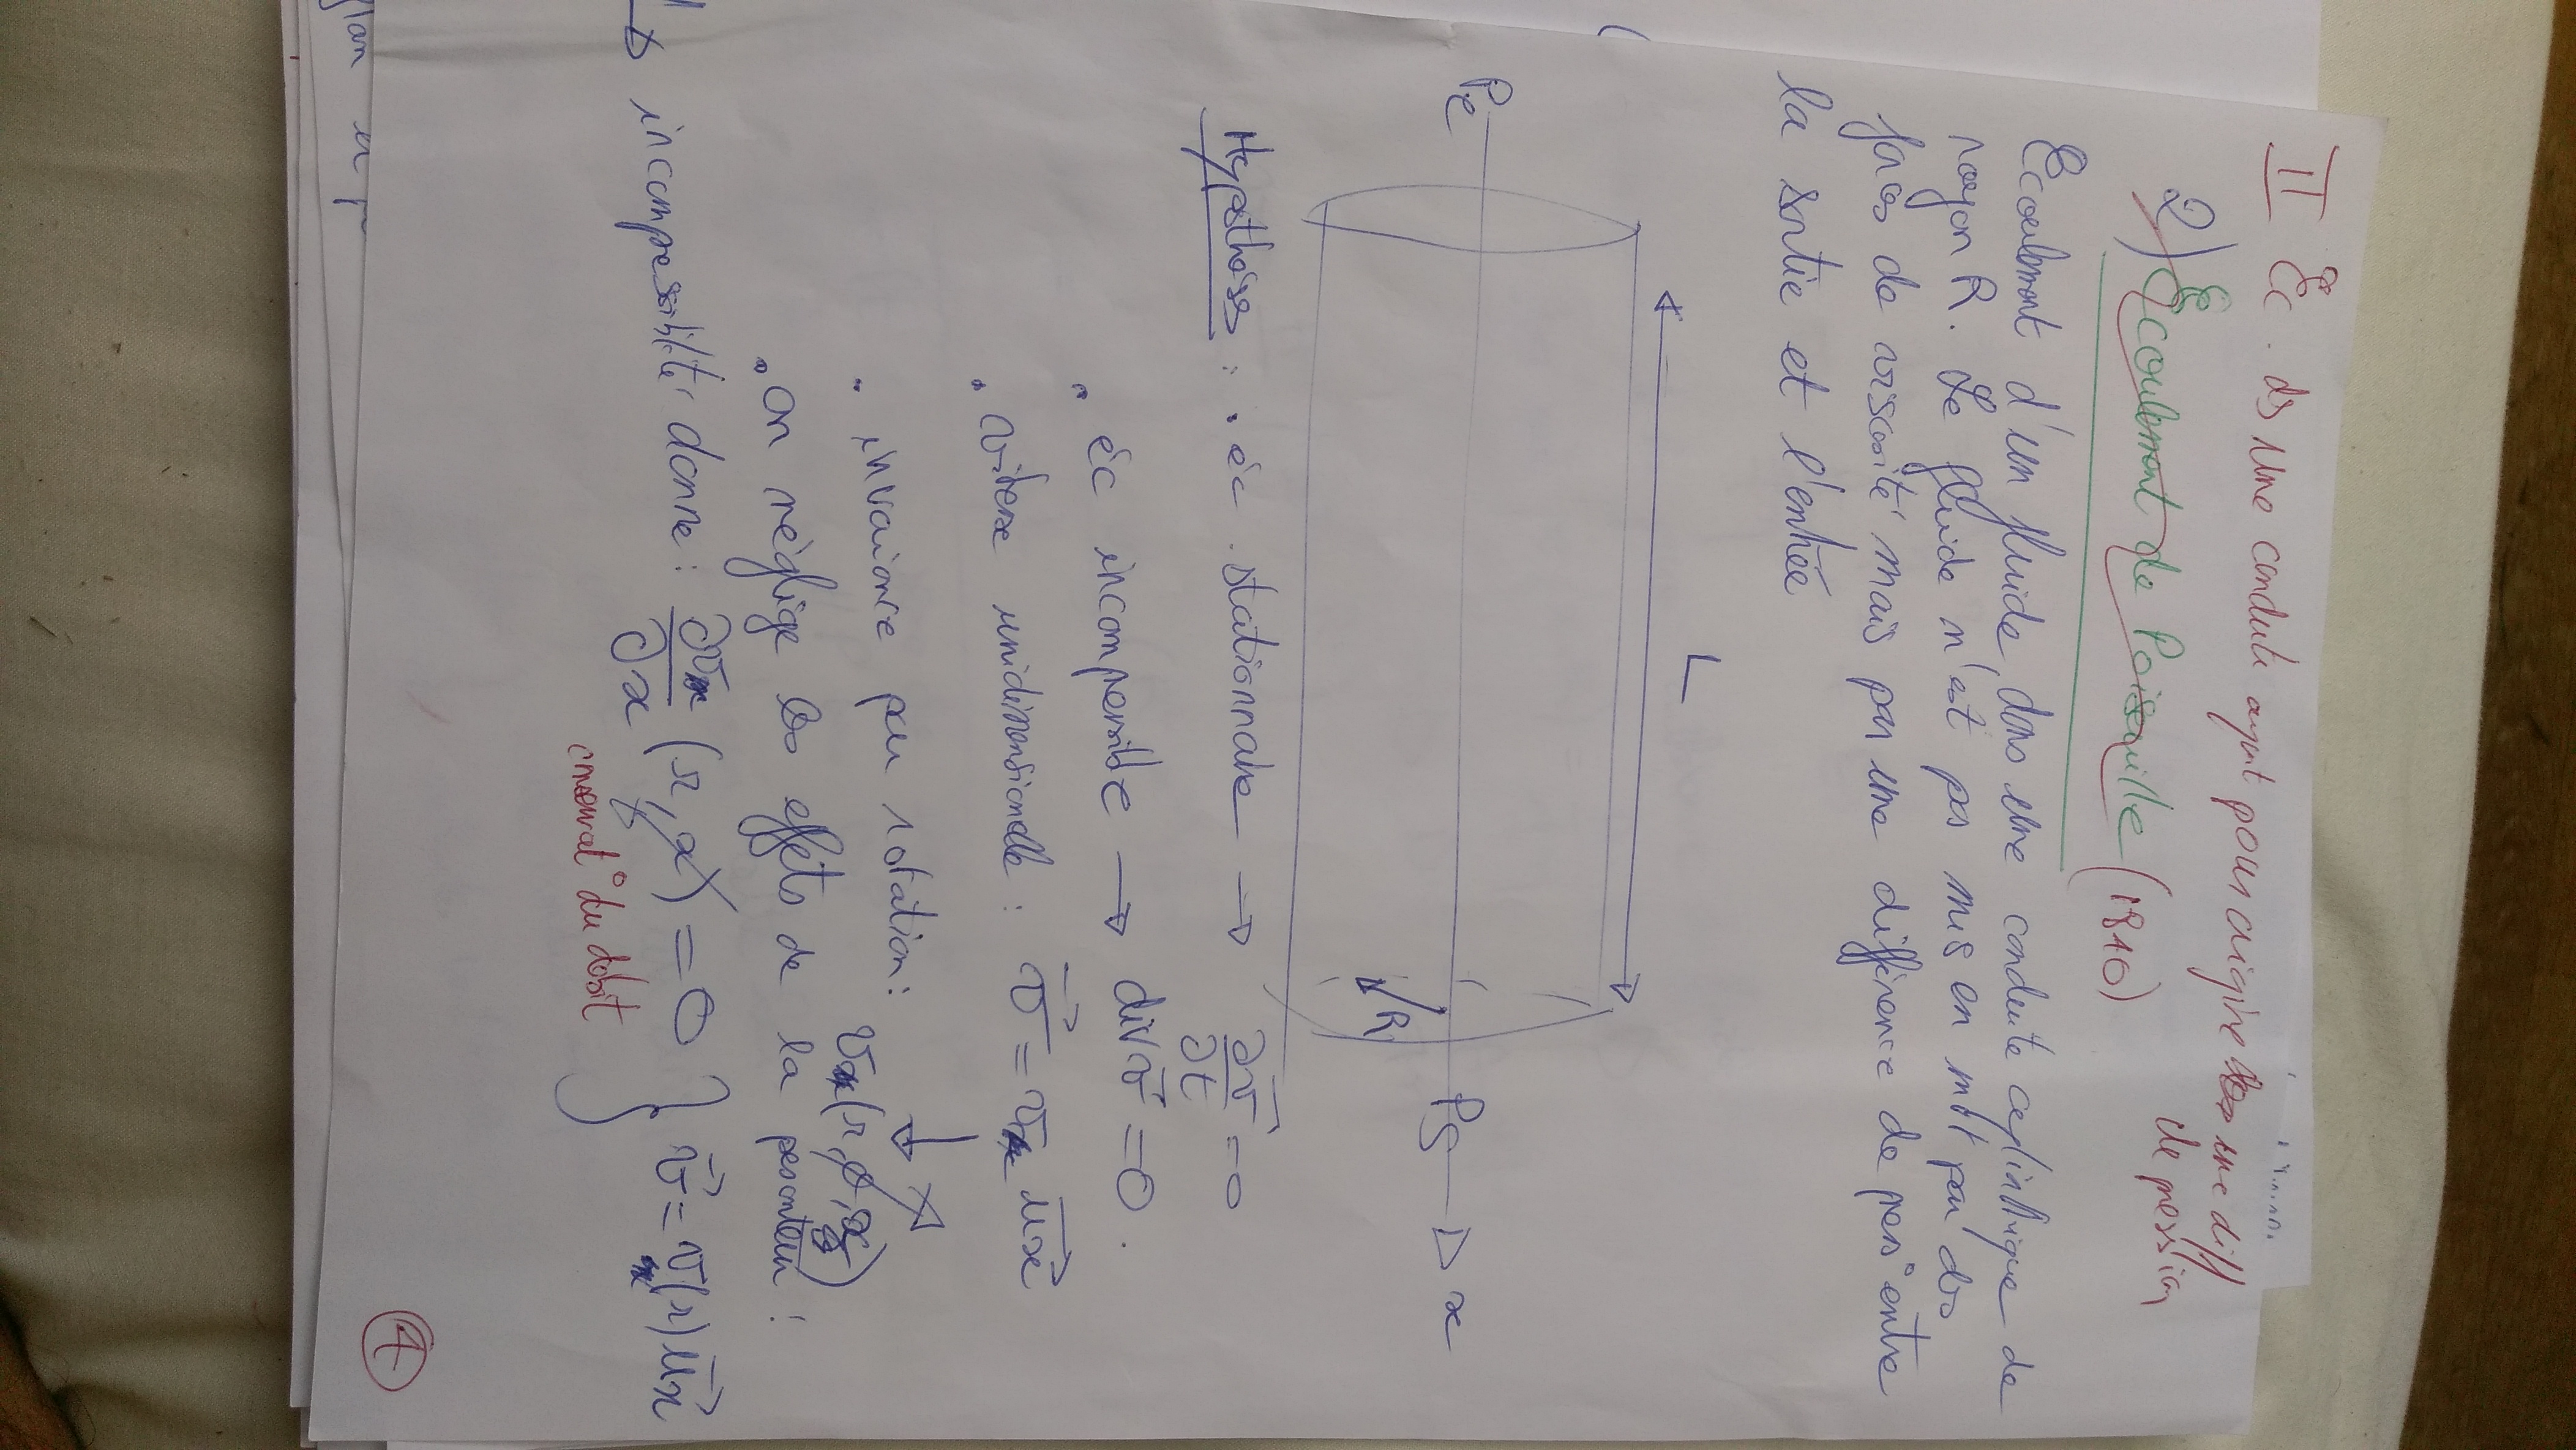 II Ec. ds une conduite ayant pour origine une diff
de pression
2) Ecoulement de Poiseuille (1840)
Ecoulement d'un fluide, dans une conduite cylindrique de
rayon R. Le fluide n'est pas mis en mvt par des
forces de viscosité mais par une différence de press° entre
la sortie et l'entrée
L
Pe
R
Ps
x
Hypothèses : . éc. stationnaire → ∂v⃗/∂t = 0
. éc incompressible → div v⃗ = 0.
. vitesse unidimensionnelle : v⃗ = vx ux⃗
. invariance par rotation : vx(r, θ, x)
. On néglige les effets de la pesanteur :
↳ incompressibilité donne : ∂vx/∂x (r, x) = 0 } v⃗ = vx(r) ux⃗
conservat° du débit
4